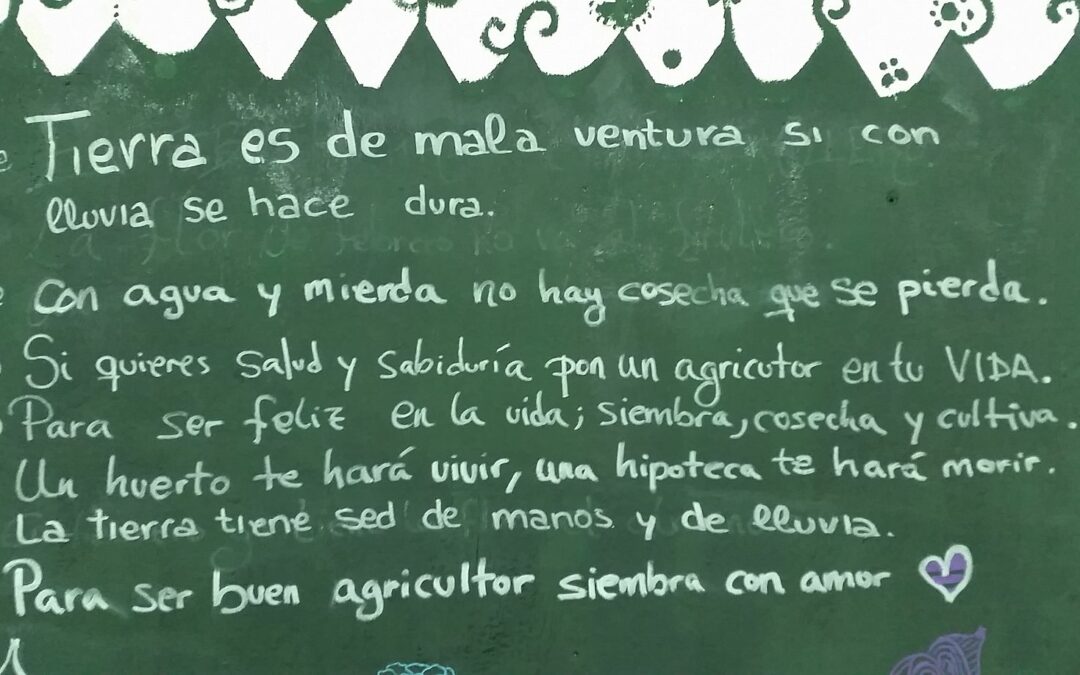 Tierra es de mala ventura si con
lluvia se hace dura.
Con agua y mierda no hay cosecha que se pierda.
Si quieres salud y sabiduría pon un agricutor en tu VIDA.
Para ser feliz en la vida; siembra, cosecha y cultiva.
Un huerto te hará vivir, una hipoteca te hará morir.
La tierra tiene sed de manos y de lluvia.
Para ser buen agricultor siembra con amor